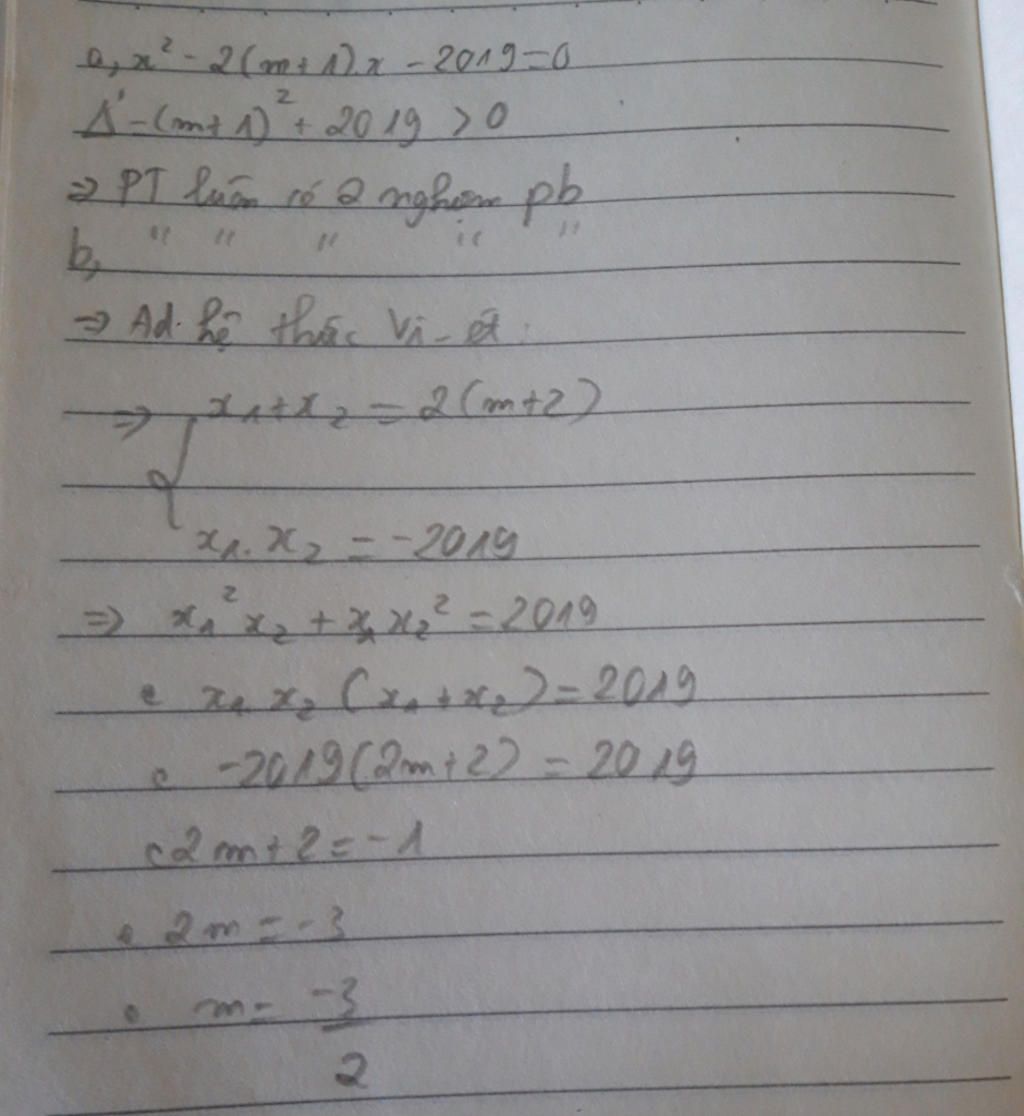 a, x² - 2(m+1).x - 2019=0
Δ' = (m+1)² + 2019 > 0
=> PT luôn có 2 nghiệm pb
b, " " " " "
=> Ad. hệ thức Vi-ét:
=> { x₁+x₂ = 2(m+2)
x₁.x₂ = -2019
=> x₁²x₂ + x₁x₂² = 2019
x₁x₂(x₁+x₂) = 2019
-2019(2m+2) = 2019
2m+2 = -1
2m = -3
m = -3/2